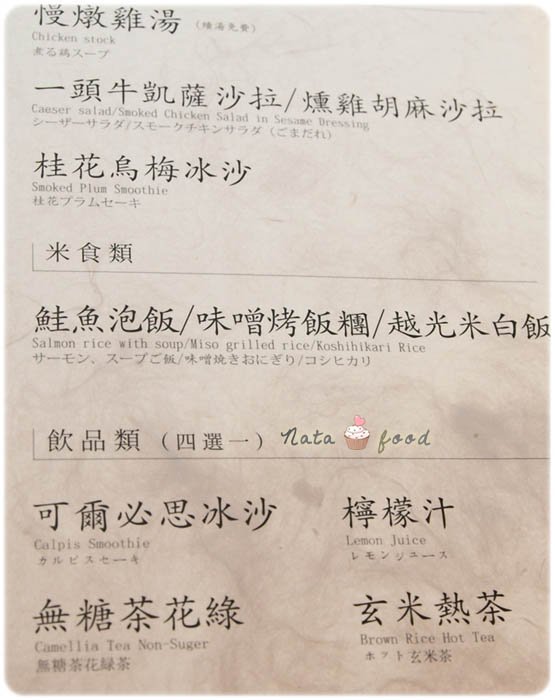 慢燉雞湯 (續湯免費)
Chicken stock
煮る鶏スープ
一頭牛凱薩沙拉/燻雞胡麻沙拉
Caeser salad/Smoked Chicken Salad in Sesame Dressing
シーザーサラダ/スモークチキンサラダ(ごまだれ)
桂花烏梅冰沙
Smoked Plum Smoothie
桂花プラムセーキ
米食類
鮭魚泡飯/味噌烤飯糰/越光米白飯
Salmon rice with soup/Miso grilled rice/Koshihikari Rice
サーモン、スープご飯/味噌焼きおにぎり/コシヒカリ
飲品類 (四選一) Nata food
可爾必思冰沙 檸檬汁
Calpis Smoothie Lemon Juice
カルピスセーキ レモンジュース
無糖茶花綠 玄米熱茶
Camellia Tea Non-Suger Brown Rice Hot Tea
無糖茶花緑茶 ホット玄米茶